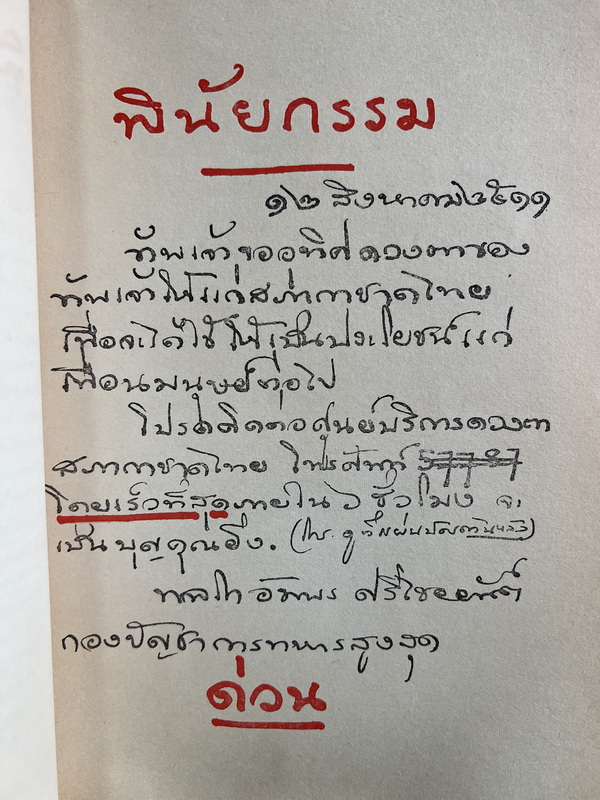 พินัยกรรม
๑๒ สิงหาคม ๒๕๑๑
ข้าพเจ้าขออุทิศดวงตาของ
ข้าพเจ้าให้แก่สภากาชาดไทย
เพื่อจะได้ใช้ให้เป็นประโยชน์แก่
เพื่อนมนุษย์ต่อไป
โปรดติดต่อศูนย์บริการดวงตา
สภากาชาดไทย โทรศัพท์ 57787
โดยเร็วที่สุดภายใน ๖ ชั่วโมง จะ
เป็นบุญคุณยิ่ง. (โทร. ดูที่แผ่นปิดด้านหลัง)
อัมพร ศรีไชยยันต์
กองบัญชาการทหารสูงสุด
ด่วน